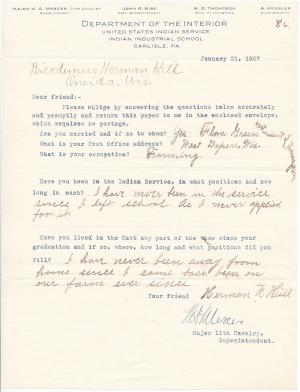 MAJOR W. A. MERCER, 11TH CAVALRY
JOHN R. WISE
W. G. THOMPSON
A. KENSLER
86
DEPARTMENT OF THE INTERIOR
UNITED STATES INDIAN SERVICE
INDIAN INDUSTRIAL SCHOOL
CARLISLE, PA.
January 21, 1907
Nicodemus Herman Hill
Oneida, Wis.
Dear friend:-
Please oblige by answering the questions below accurately
and promptly and return this paper to me in the enclosed envelope,
which requires no postage.
Are you married and if so to whom? Yes. Flora Green
What is your Post Office address? West Depere, Wis.
What is your occupation? Framming.
Have you been in the Indian Service, in what positions and how
long in each. I have never been in the service
since I left school. As I never applied
for it.
Have you lived in the East any part of the time since your
graduation and if so, where, how long and what positions did you
fill? I have never been away from
home since I came back been on
our farm ever since
Your friend Herman N. Hill
W A Mercer
Major 11th Cavalry,
Superintendent.